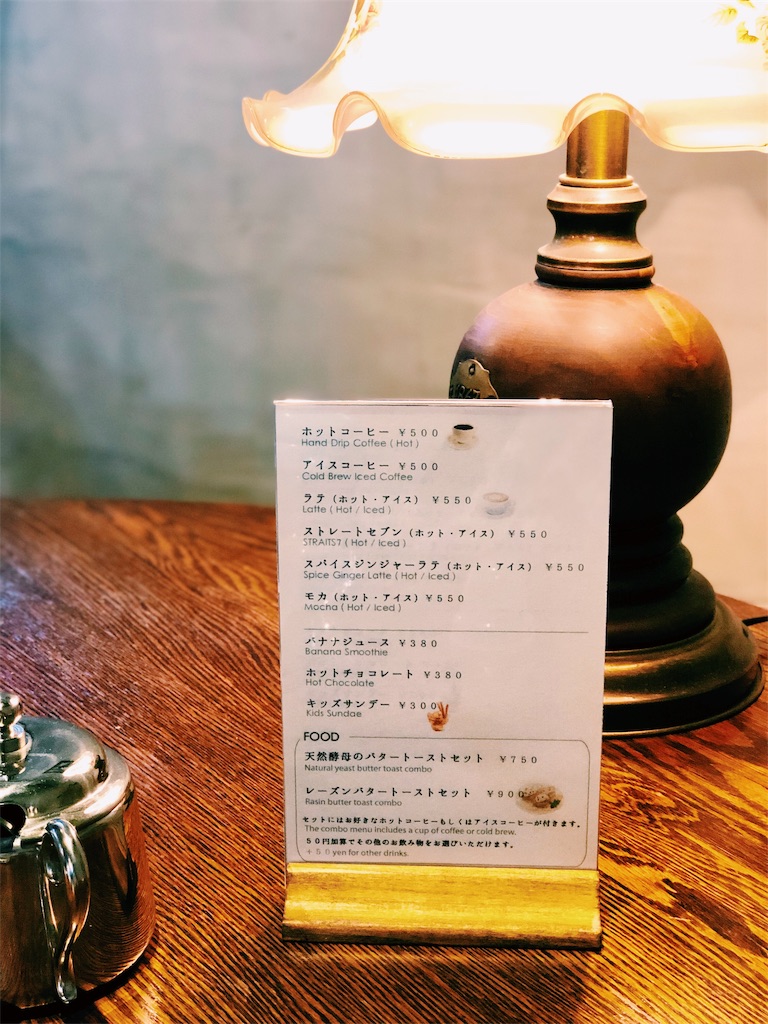 ホットコーヒー ￥５００
Hand Drip Coffee ( Hot )
アイスコーヒー ￥５００
Cold Brew Iced Coffee
ラテ（ホット・アイス） ￥５５０
Latte ( Hot / Iced )
ストレートセブン（ホット・アイス） ￥５５０
STRAITS7 ( Hot / Iced )
スパイスジンジャーラテ（ホット・アイス） ￥５５０
Spice Ginger Latte ( Hot / Iced )
モカ（ホット・アイス）￥５５０
Mocha ( Hot / Iced )
バナナジュース ￥３８０
Banana Smoothie
ホットチョコレート ￥３８０
Hot Chocolate
キッズサンデー ￥３００
Kids Sundae
FOOD
天然酵母のバタートーストセット ￥７５０
Natural yeast butter toast combo
レーズンバタートーストセット ￥９００
Rasin butter toast combo
セットにはお好きなホットコーヒーもしくはアイスコーヒーが付きます。
The combo menu includes a cup of coffee or cold brew.
５０円加算でその他のお飲み物をお選びいただけます。
＋５０yen for other drinks.